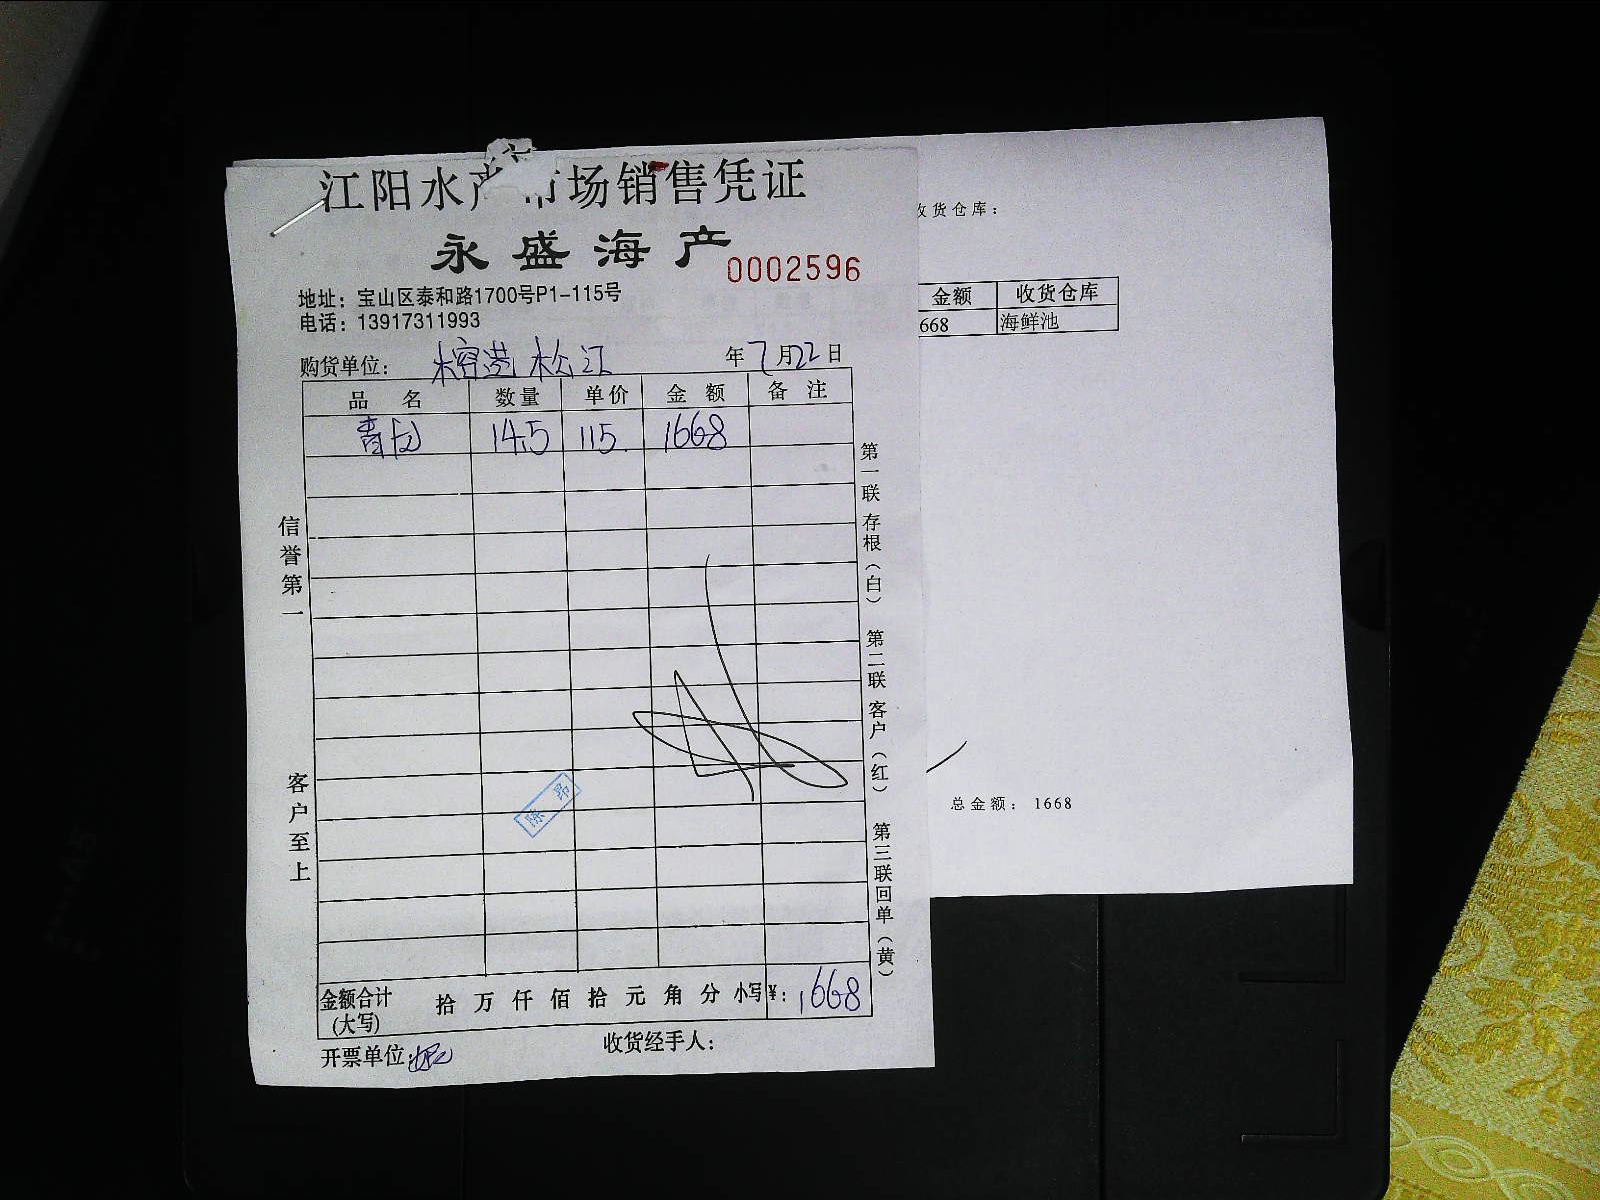 江阳水产市场销售凭证
永盛海产
0002596
地址：宝山区泰和路1700号P1-115号
电话：13917311993
购货单位：榕港 松江 年7月22日
品名 数量 单价 金额 备注
14.5 115. 1668
信誉第一
客户至上
第一联 存根（白） 第二联 客户（红） 第三联回单（黄）
陈昂
金额合计(大写) 拾 万 仟 佰 拾 元 角 分 小写¥：1668
开票单位： 收货经手人：
收货仓库：
金额 收货仓库
668 海鲜池
总金额： 1668